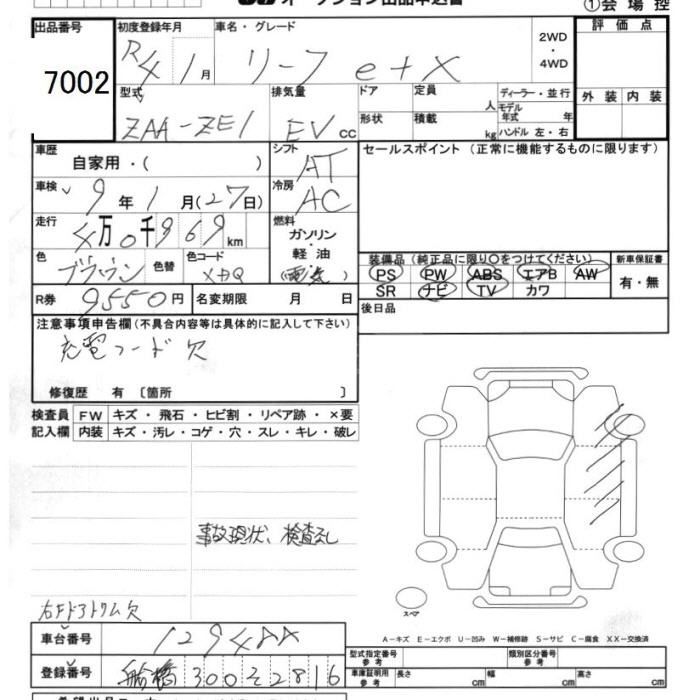 オークション出品申込書
①会場控
出品番号 7002
初度登録年月 R4 1月
車名・グレード リーフ e+X
2WD・4WD
評価点
外装 内装
型式 ZAA-ZE1
排気量 EV CC
ドア
定員 人
ディーラー・並行
モデル年式 年
形状
積載 kg
ハンドル 左・右
車歴 自家用・( )
シフト AT
セールスポイント(正常に機能するものに限ります)
車検 9年1月(27日)
冷房 AC
走行 4万0千969km
燃料 ガソリン・軽油(電気)
色 ブラウン 色替 色コード XBQ
装備品(純正品に限り○をつけてください) 新車保証書
PS PW ABS エアB AW 有・無
SR ナビ TV カワ
R券 9550円 名変期限 月 日
後日品
注意事項申告欄(不具合内容等は具体的に記入して下さい)
充電コード欠
修復歴 有 〔箇所 〕
検査員記入欄 FW キズ・飛石・ヒビ割・リペア跡・×要
内装 キズ・汚レ・コゲ・穴・スレ・キレ・破レ
事故現状、検査なし
右Fドアトリム欠
スペア
A-キズ E-エクボ U-凹み W-補修跡 S-サビ C-腐食 XX-交換済
車台番号
型式指定番号 参考 類別区分番号 参考
登録番号 船橋 300 そ 2816
車庫証明用 参考 長さ cm 幅 cm 高さ cm